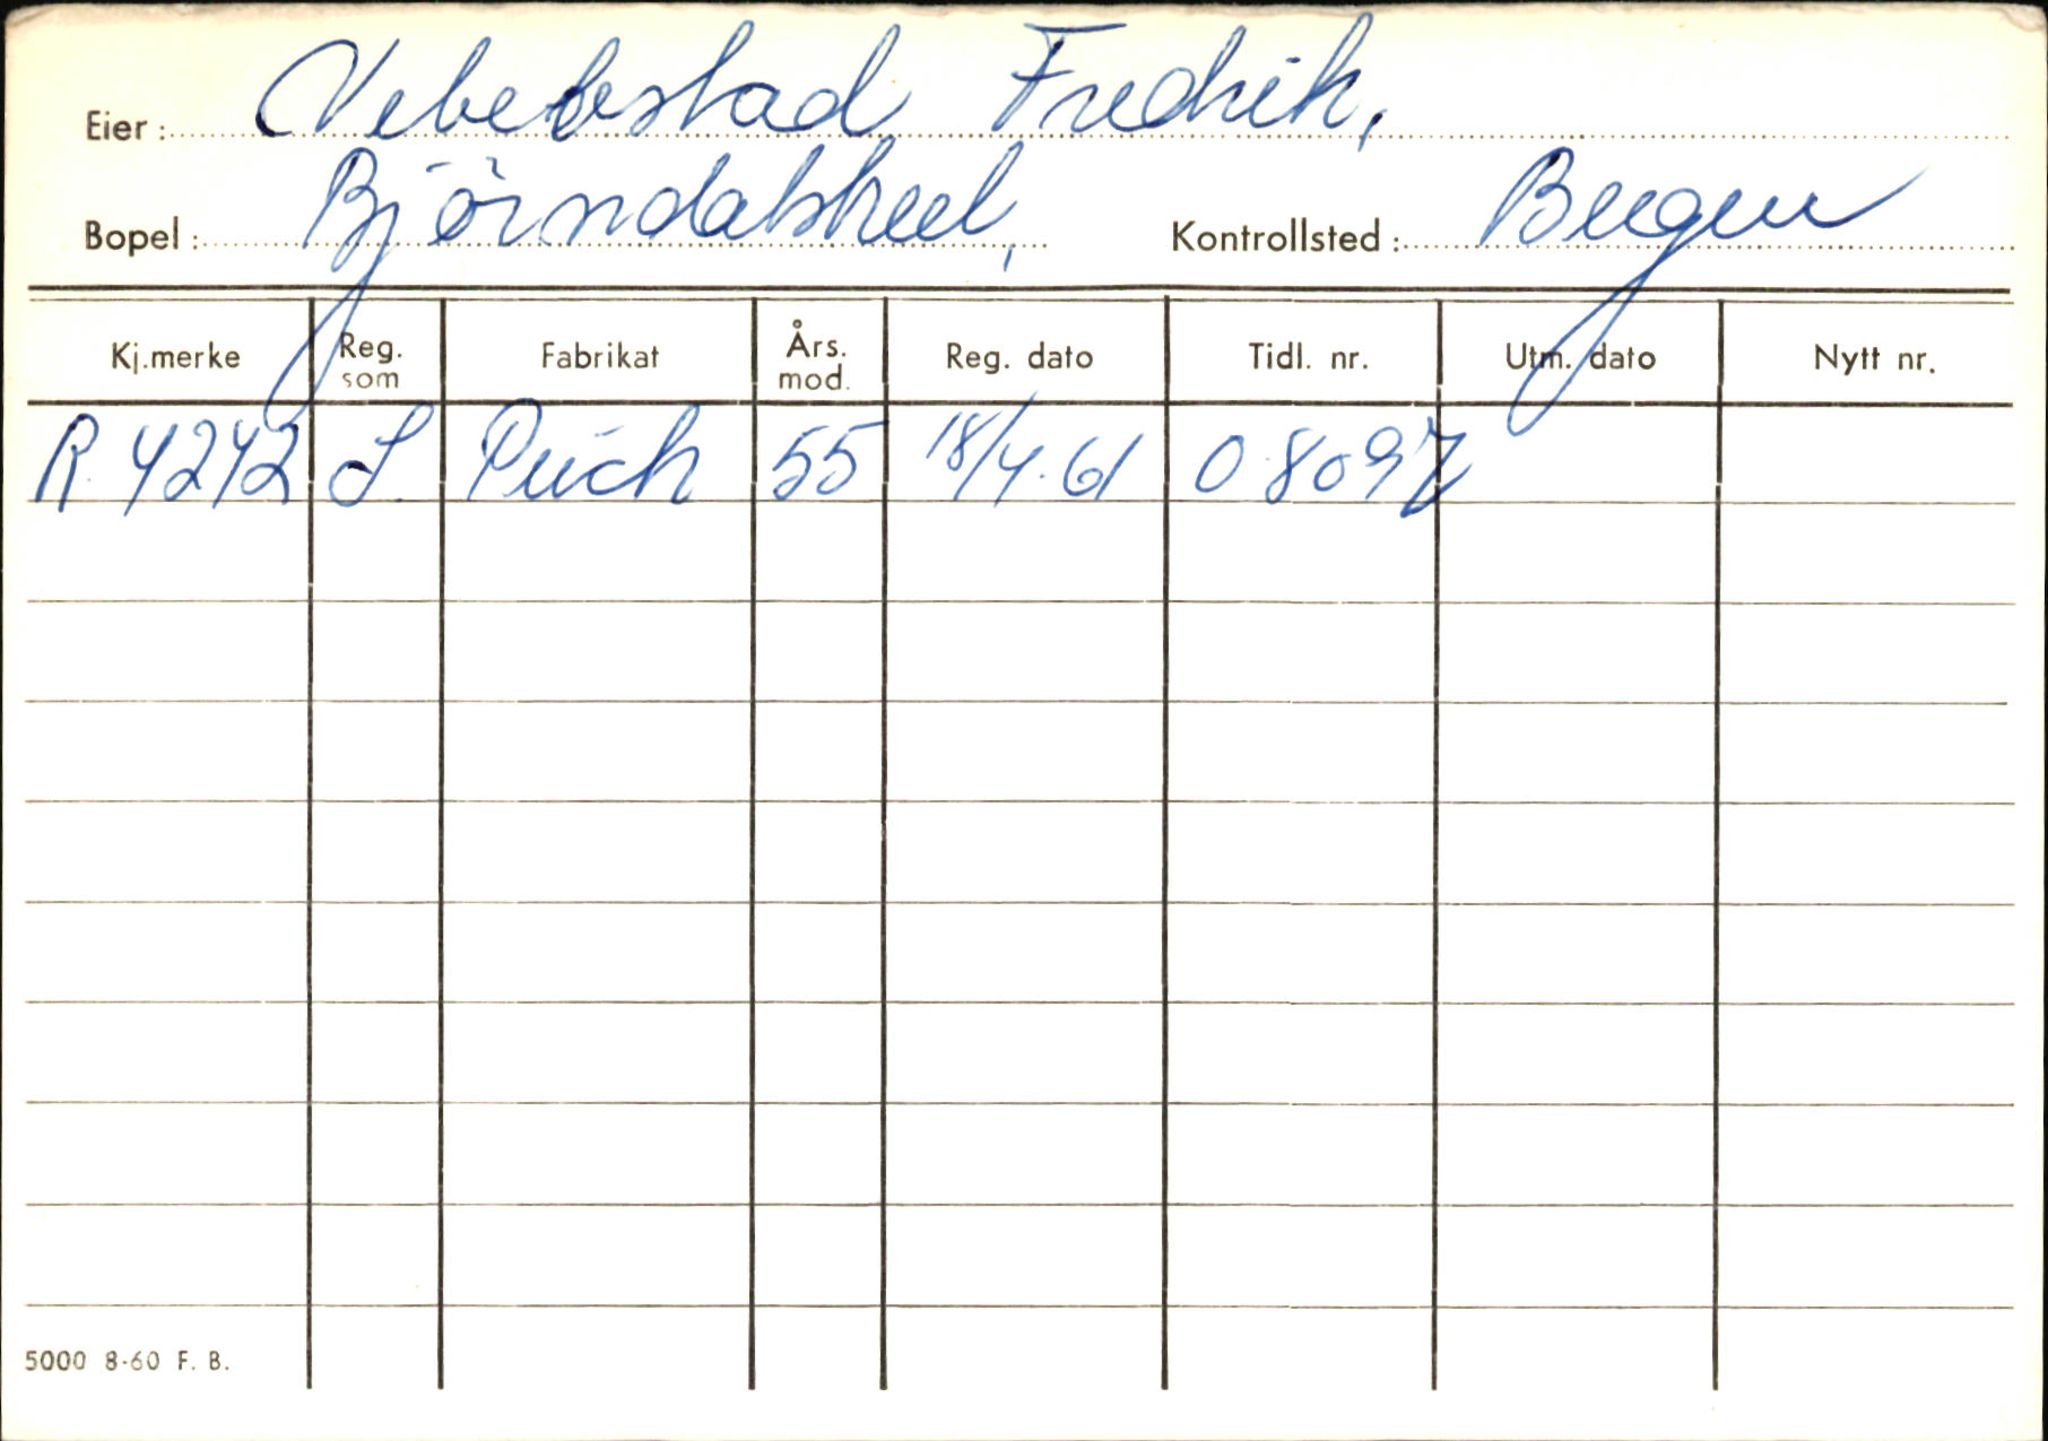 Eier: Vebenstad Fredrik,
Bopel: Björndalsheel, Kontrollsted: Bergen
Kj.merke Reg. som Fabrikat Års. mod. Reg. dato Tidl. nr. Utm. dato Nytt nr.
R.4242 L. Puch 55 18/4.61 O.8097
5000 8-60 F. B.